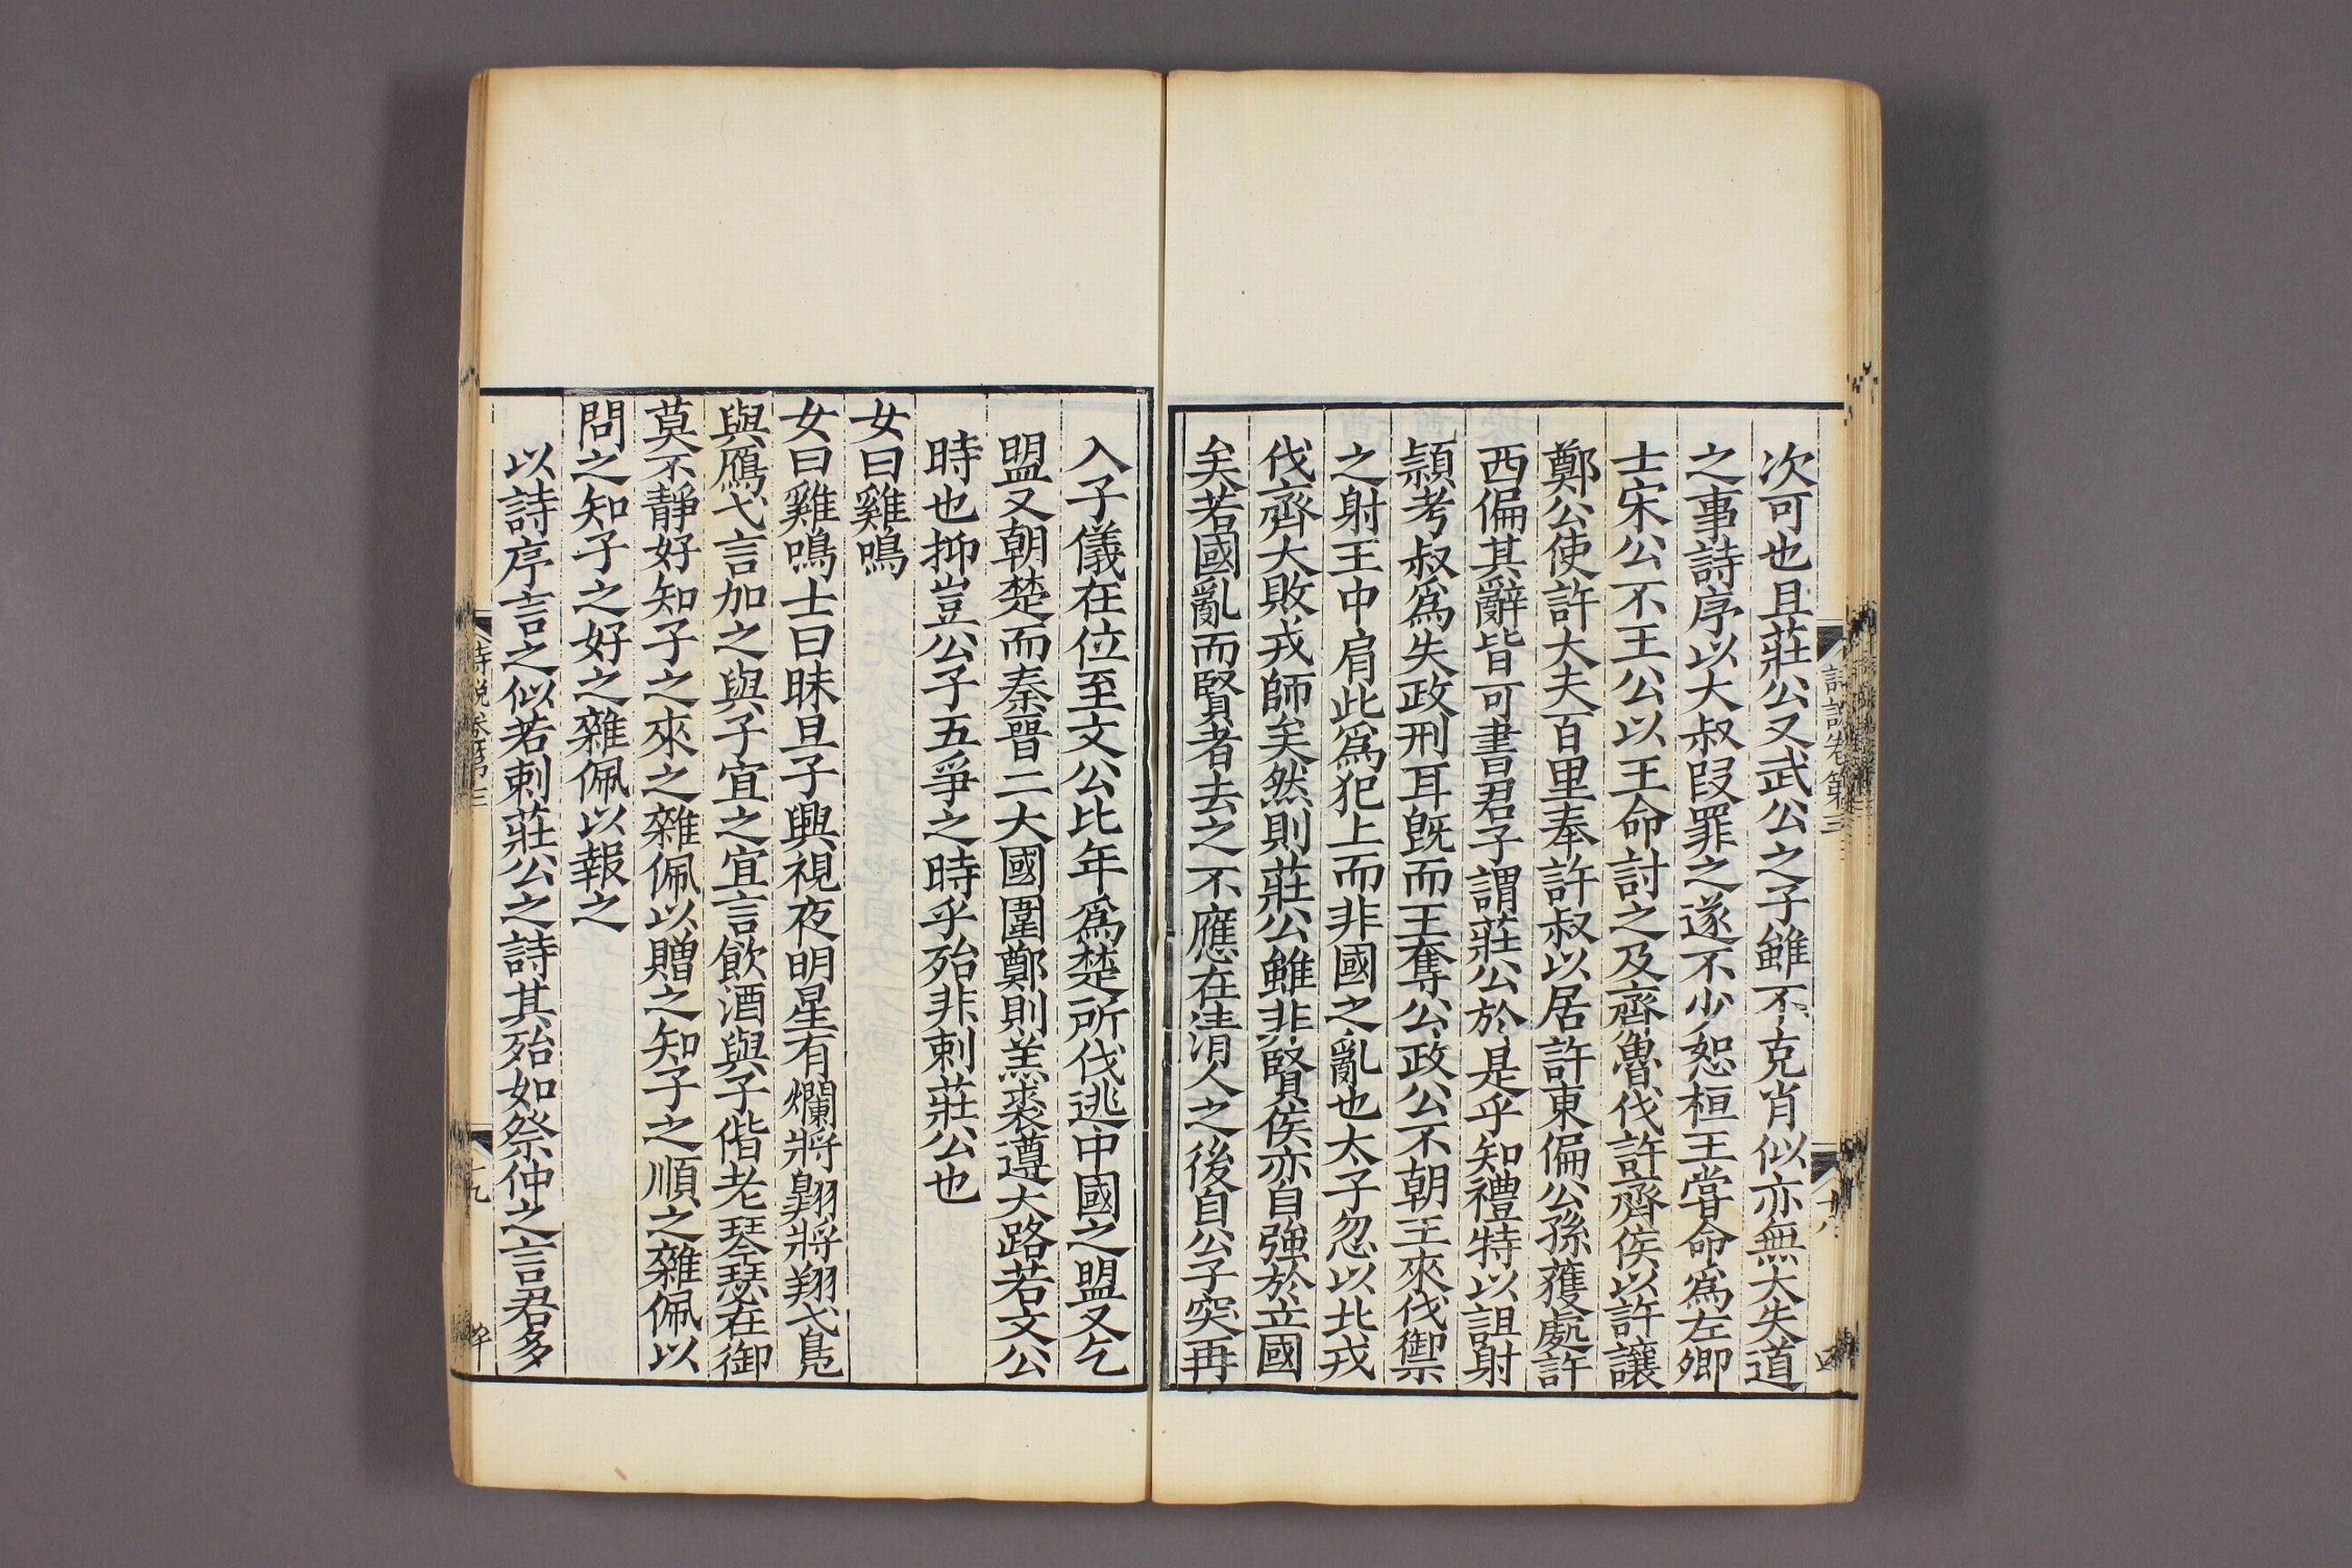 次可也且莊公又武公之子雖不克肖似亦無大失道
之事詩序以大叔段罪之遂不少恕桓王嘗命爲左卿
士宋公不王公以王命討之及齊魯伐許齊侯以許讓
鄭公使許大夫百里奉許叔以居許東偏公孫獲處許
西偏其辭皆可書君子謂莊公於是乎知禮特以詛射
頴考叔爲失政刑耳旣而王奪公政公不朝王來伐禦
之射王中肩此爲犯上而非國之亂也太子忽以北戎
伐齊大敗戎師矣然則莊公雖非賢侯亦自強於立國
矣若國亂而賢者去之不應在清人之後自公子突再
詩説卷第三
十八
入子儀在位至文公比年爲楚所伐逃中國之盟又乞
盟又朝楚而秦晉二大國圍鄭則羔裘遵大路若文公
時也抑豈公子五爭之時乎殆非刺莊公也
女曰雞鳴
女曰雞鳴士曰昧旦子興視夜明星有爛將翱將翔弋鳧
與鴈弋言加之與子宜之宜言飲酒與子偕老琴瑟在御
莫不靜好知子之來之雜佩以贈之知子之順之雜佩以
問之知子之好之雜佩以報之
以詩序言之似若刺莊公之詩其殆如祭仲之言君多
詩説卷第三
十九